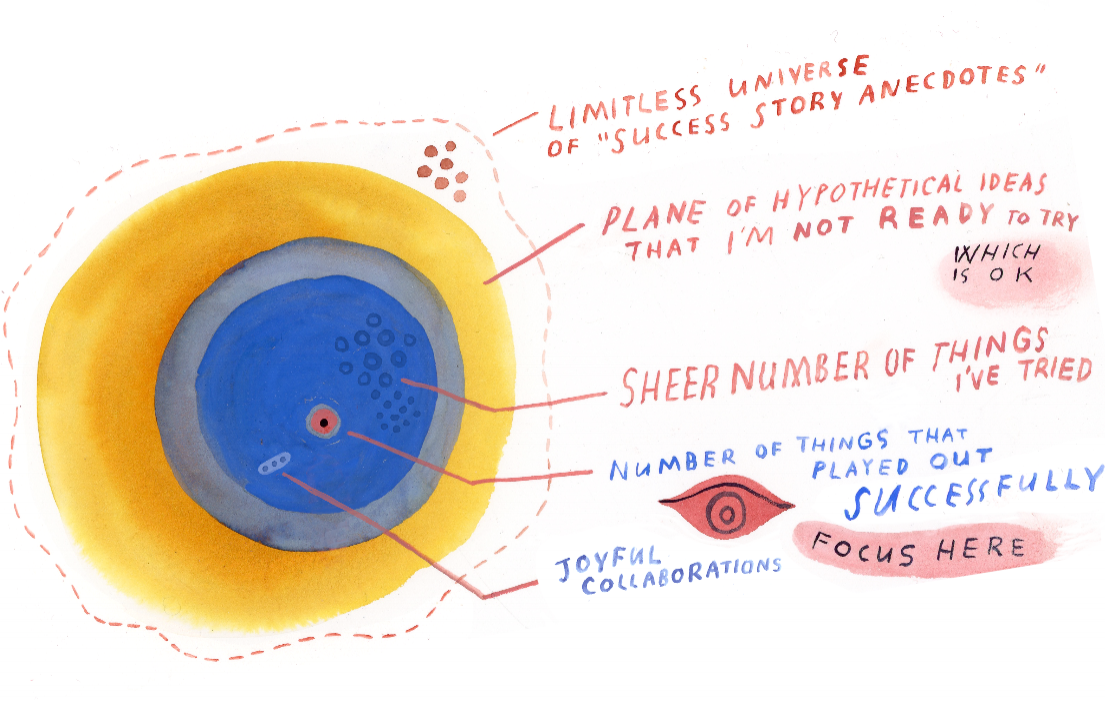 LIMITLESS UNIVERSE
OF "SUCCESS STORY ANECDOTES"
PLANE OF HYPOTHETICAL IDEAS
THAT I'M NOT READY TO TRY
WHICH
IS OK
SHEER NUMBER OF THINGS
I'VE TRIED
NUMBER OF THINGS THAT
PLAYED OUT
SUCCESSFULLY
FOCUS HERE
JOYFUL
COLLABORATIONS